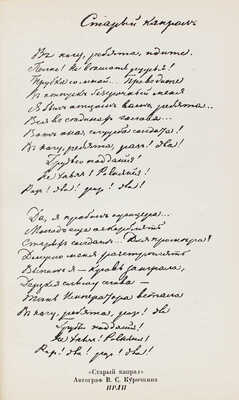 Старый капрал.
Въ ногу, ребята, идите.
Полно! Не вѣшать ружья!
Трубка со мной... Проводите
Въ отпускъ безсрочный меня
Я былъ отцомъ вамъ, ребята...
Вся въ сѣдинахъ голова...
Вотъ она служба солдата!..
Въ ногу, ребята, разъ! Два!
Грудью подайся!
Не хнычь! Равняйся!
Разъ! Два! разъ! Два!
Да, я прибилъ офицера...
Молодъ еще оскорблять
Старыхъ солдатъ... Для примѣра!
Должно меня разстрѣлять
Выпилъ я — Кровь заиграла,
Дерзкія слышу слова —
Тѣнь Императора встала
Въ ногу, ребята, разъ! Два
Грудью подайся!
Не хнычь! Равняйся!
Разъ! Два! разъ! Два!
«Старый капрал»
Автограф В. С. Курочкина
ИРЛИ